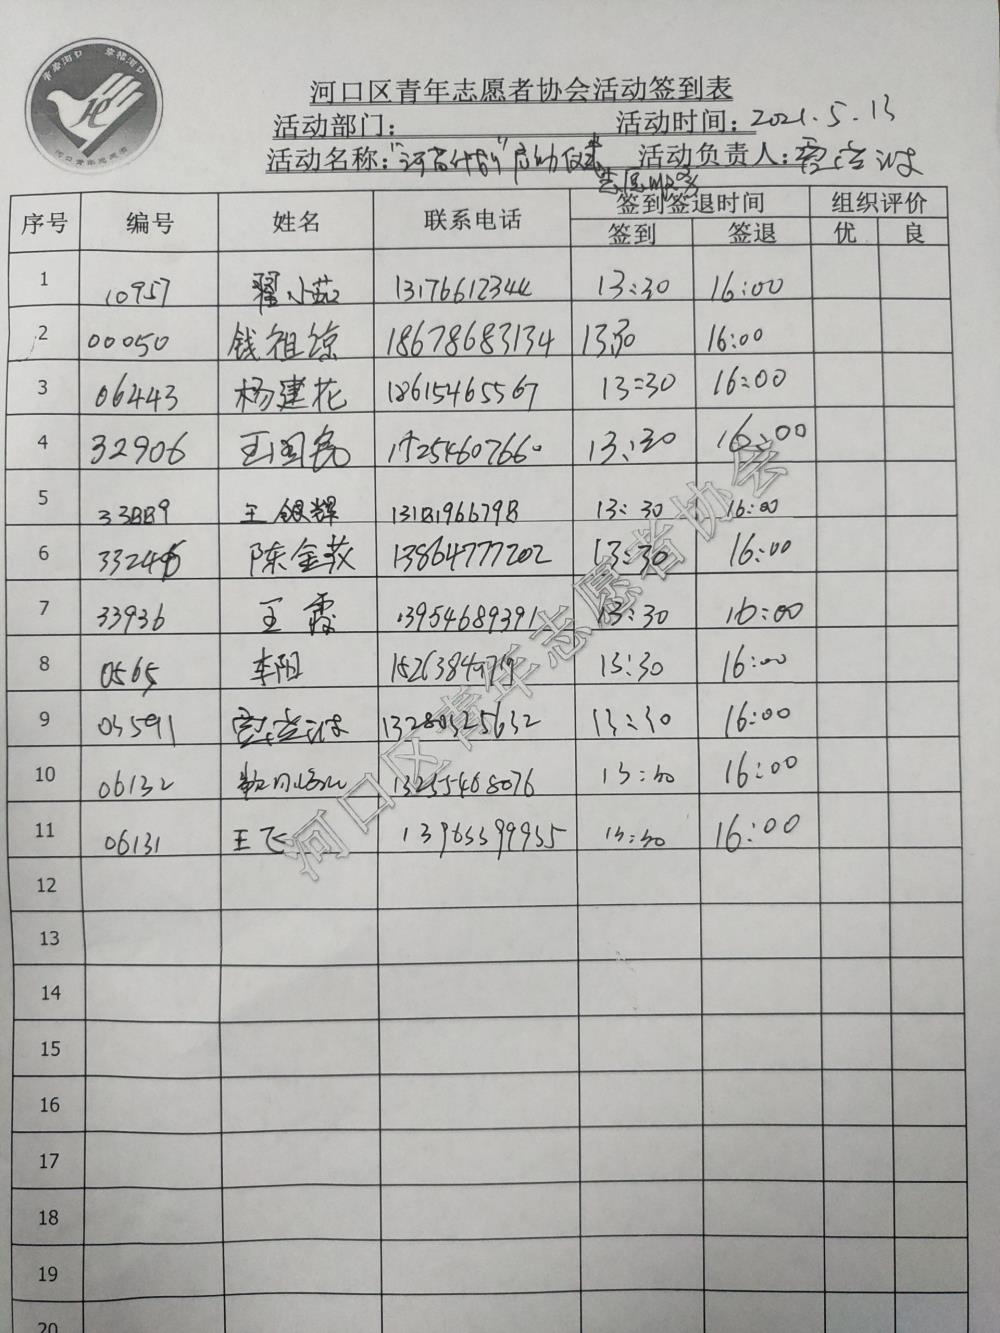 河口区青年志愿者协会活动签到表
活动部门： 活动时间：2021.5.13
活动名称： 启动仪式 活动负责人：
志愿服务
序号 编号 姓名 联系电话 签到签退时间 组织评价
签到 签退 优 良
1 10957 翟小茹 13176612344 13:30 16:00
2 00050 钱祖琼 18678683134 13:30 16:00
3 06443 杨建花 18615465567 13:30 16:00
4 32906 王国民 13:30 16:00
5 33889 王银辉 13181966798 13:30 16:00
6 陈金获 13864777202 13:30 16:00
7 33936 王霞 13954689391 13:30 16:00
8 0565 李阳 13:30 16:00
9 03591 13280325632 13:30 16:00
10 06132 13255468076 13:30 16:00
11 06131 王飞 13:30 16:00
12
13
14
15
16
17
18
19
20
河口区青年志愿者协会